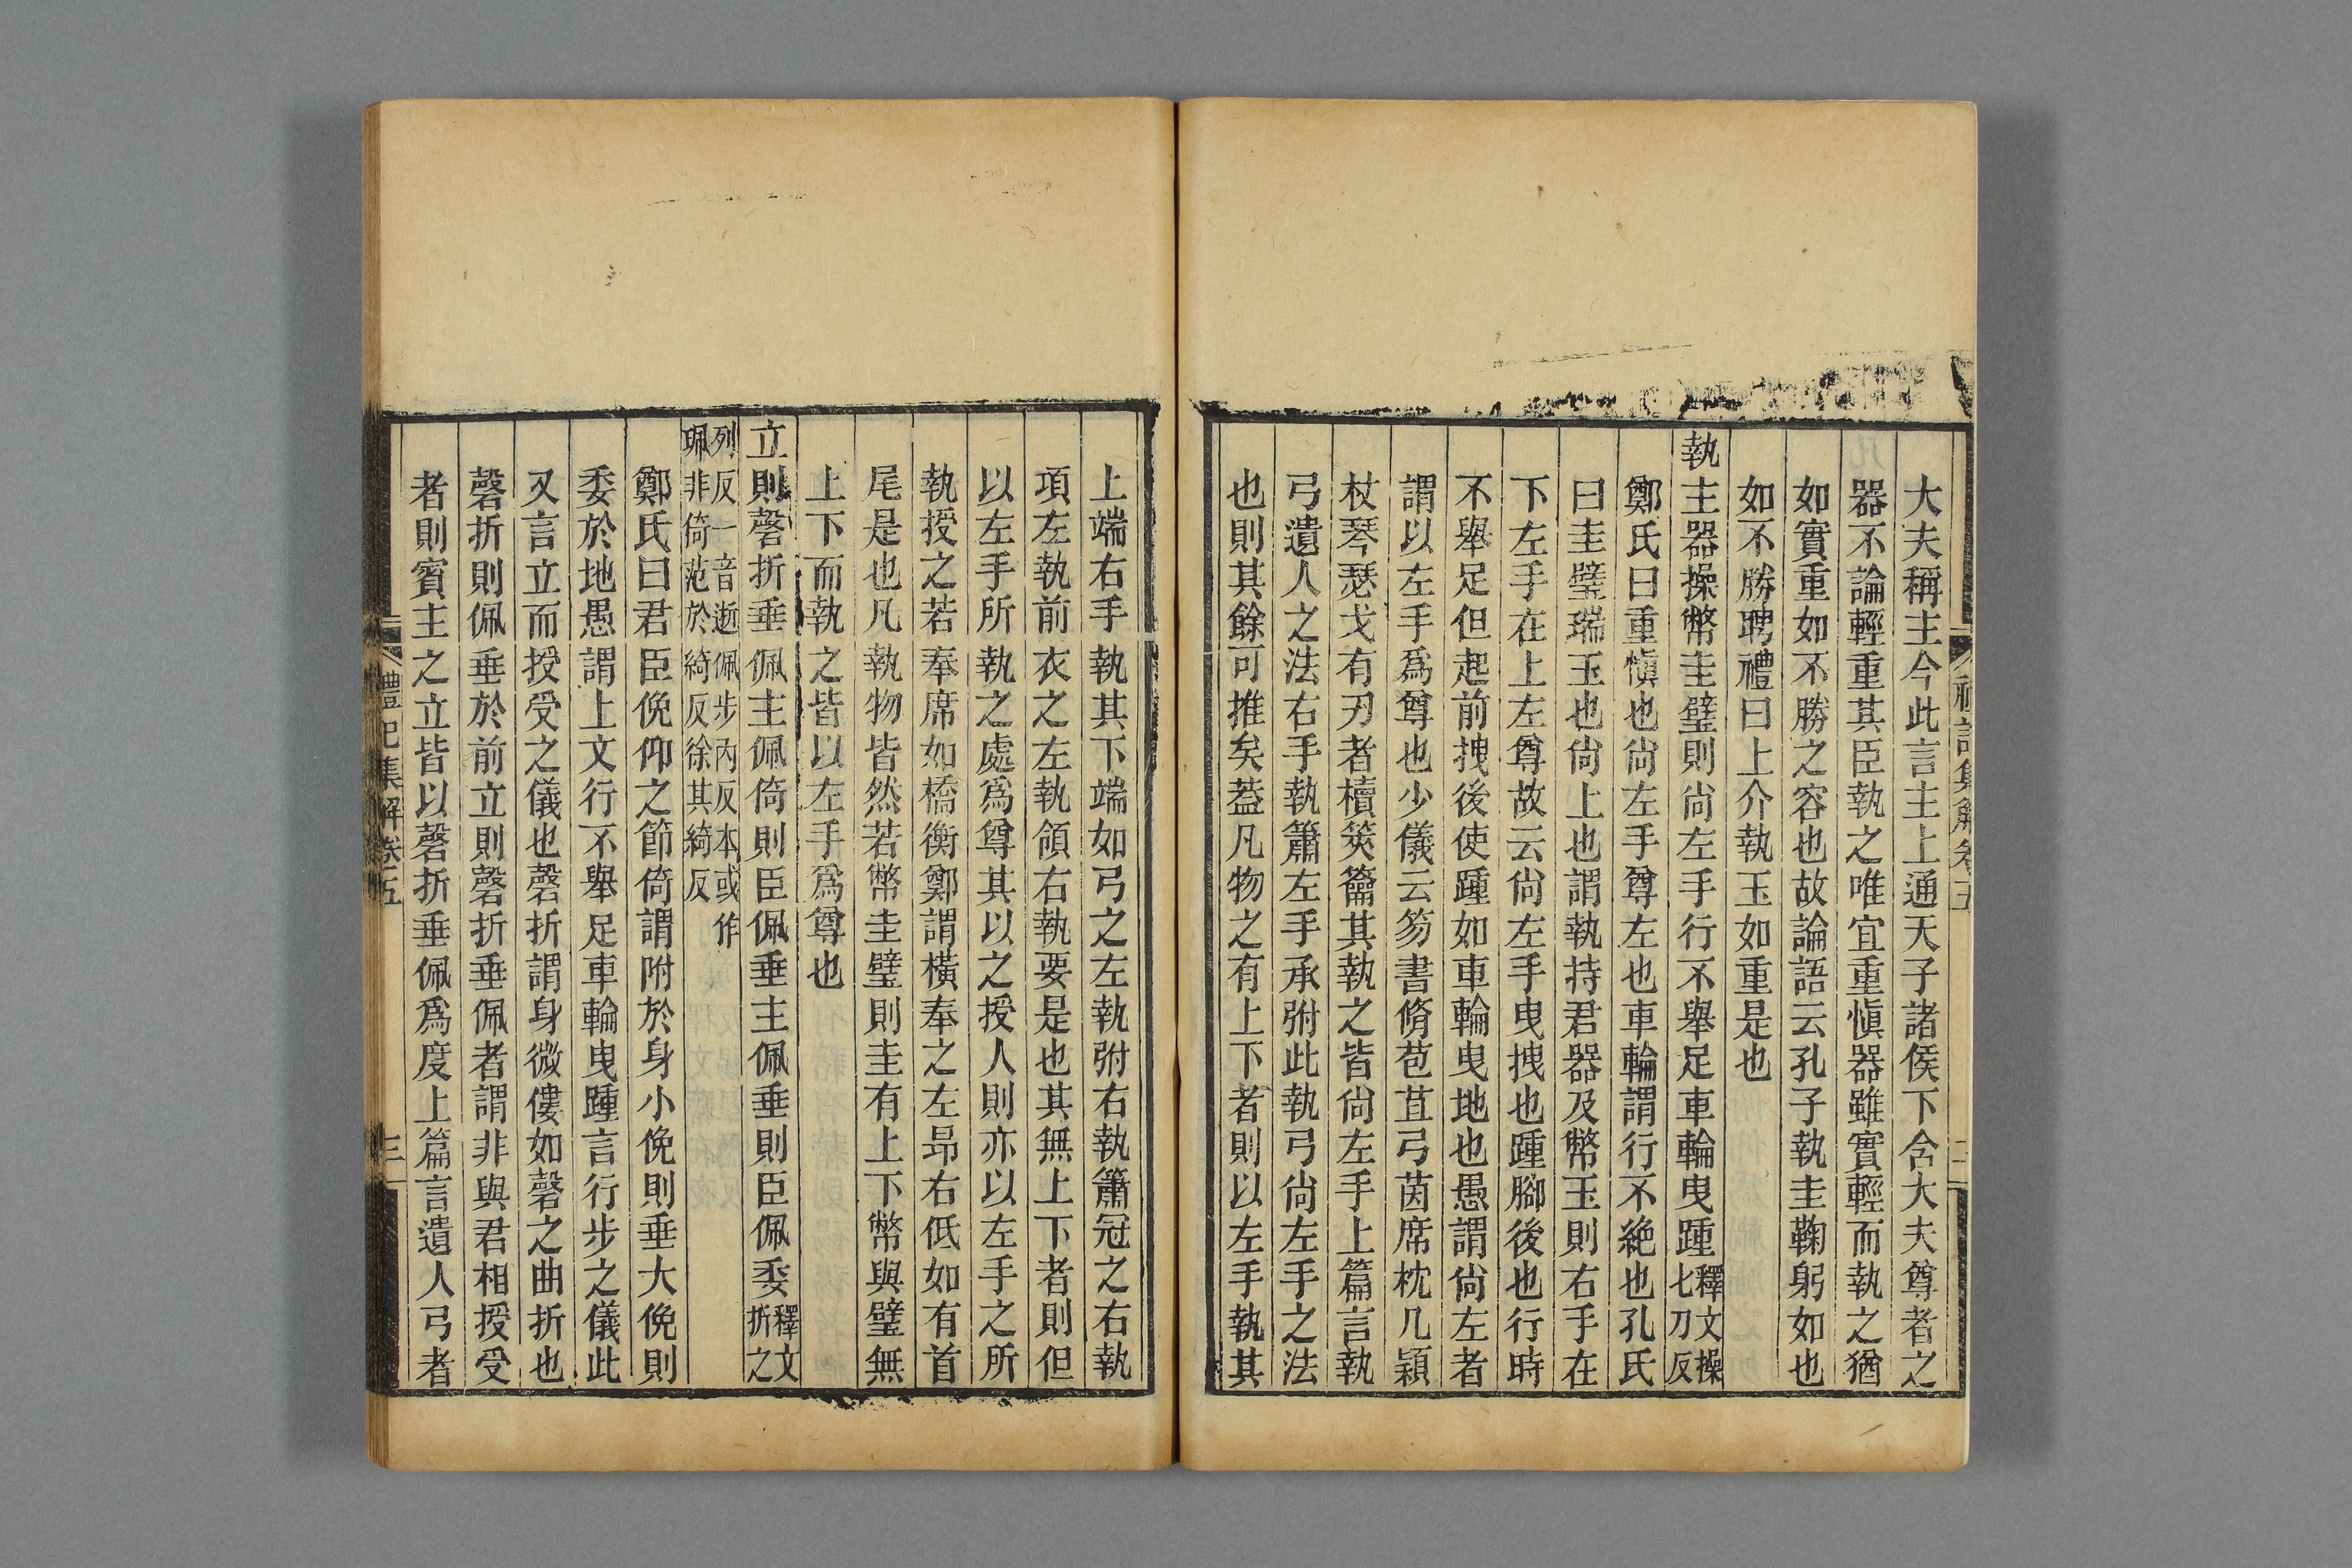 禮記集解卷五
二
大夫稱主今此言主上通天子諸侯下含大夫尊者之
器不論輕重其臣執之唯宜重愼器雖實輕而執之猶
如實重如不勝之容也故論語云孔子執圭鞠躬如也
如不勝聘禮曰上介執玉如重是也
執主器操幣圭璧則尙左手行不舉足車輪曳踵釋文操
七刀反
鄭氏曰重愼也尙左手尊左也車輪謂行不絶也孔氏
曰圭璧瑞玉也尙上也謂執持君器及幣玉則右手在
下左手在上左尊故云尙左手曳拽也踵腳後也行時
不舉足但起前拽後使踵如車輪曳地也愚謂尙左者
謂以左手爲尊也少儀云笏書脩苞苴弓茵席枕几穎
杖琴瑟戈有刃者櫝筴籥其執之皆尙左手上篇言執
弓遺人之法右手執簫左手承弣此執弓尙左手之法
也則其餘可推矣葢凡物之有上下者則以左手執其
上端右手執其下端如弓之左執弣右執簫冠之右執
項左執前衣之左執領右執要是也其無上下者則但
以左手所執之處爲尊其以之授人則亦以左手之所
執授之若奉席如橋衡鄭謂橫奉之左昻右低如有首
尾是也凡執物皆然若幣圭璧則圭有上下幣與璧無
上下而執之皆以左手爲尊也
立則磬折垂佩主佩倚則臣佩垂主佩垂則臣佩委釋文
折之
列反一音逝佩步內反本或作
珮非倚范於綺反徐其綺反
鄭氏曰君臣俛仰之節倚謂附於身小俛則垂大俛則
委於地愚謂上文行不舉足車輪曳踵言行步之儀此
又言立而授受之儀也磬折謂身微僂如磬之曲折也
磬折則佩垂於前立則磬折垂佩者謂非與君相授受
者則賓主之立皆以磬折垂佩爲度上篇言遺人弓者
禮記集解卷五
三